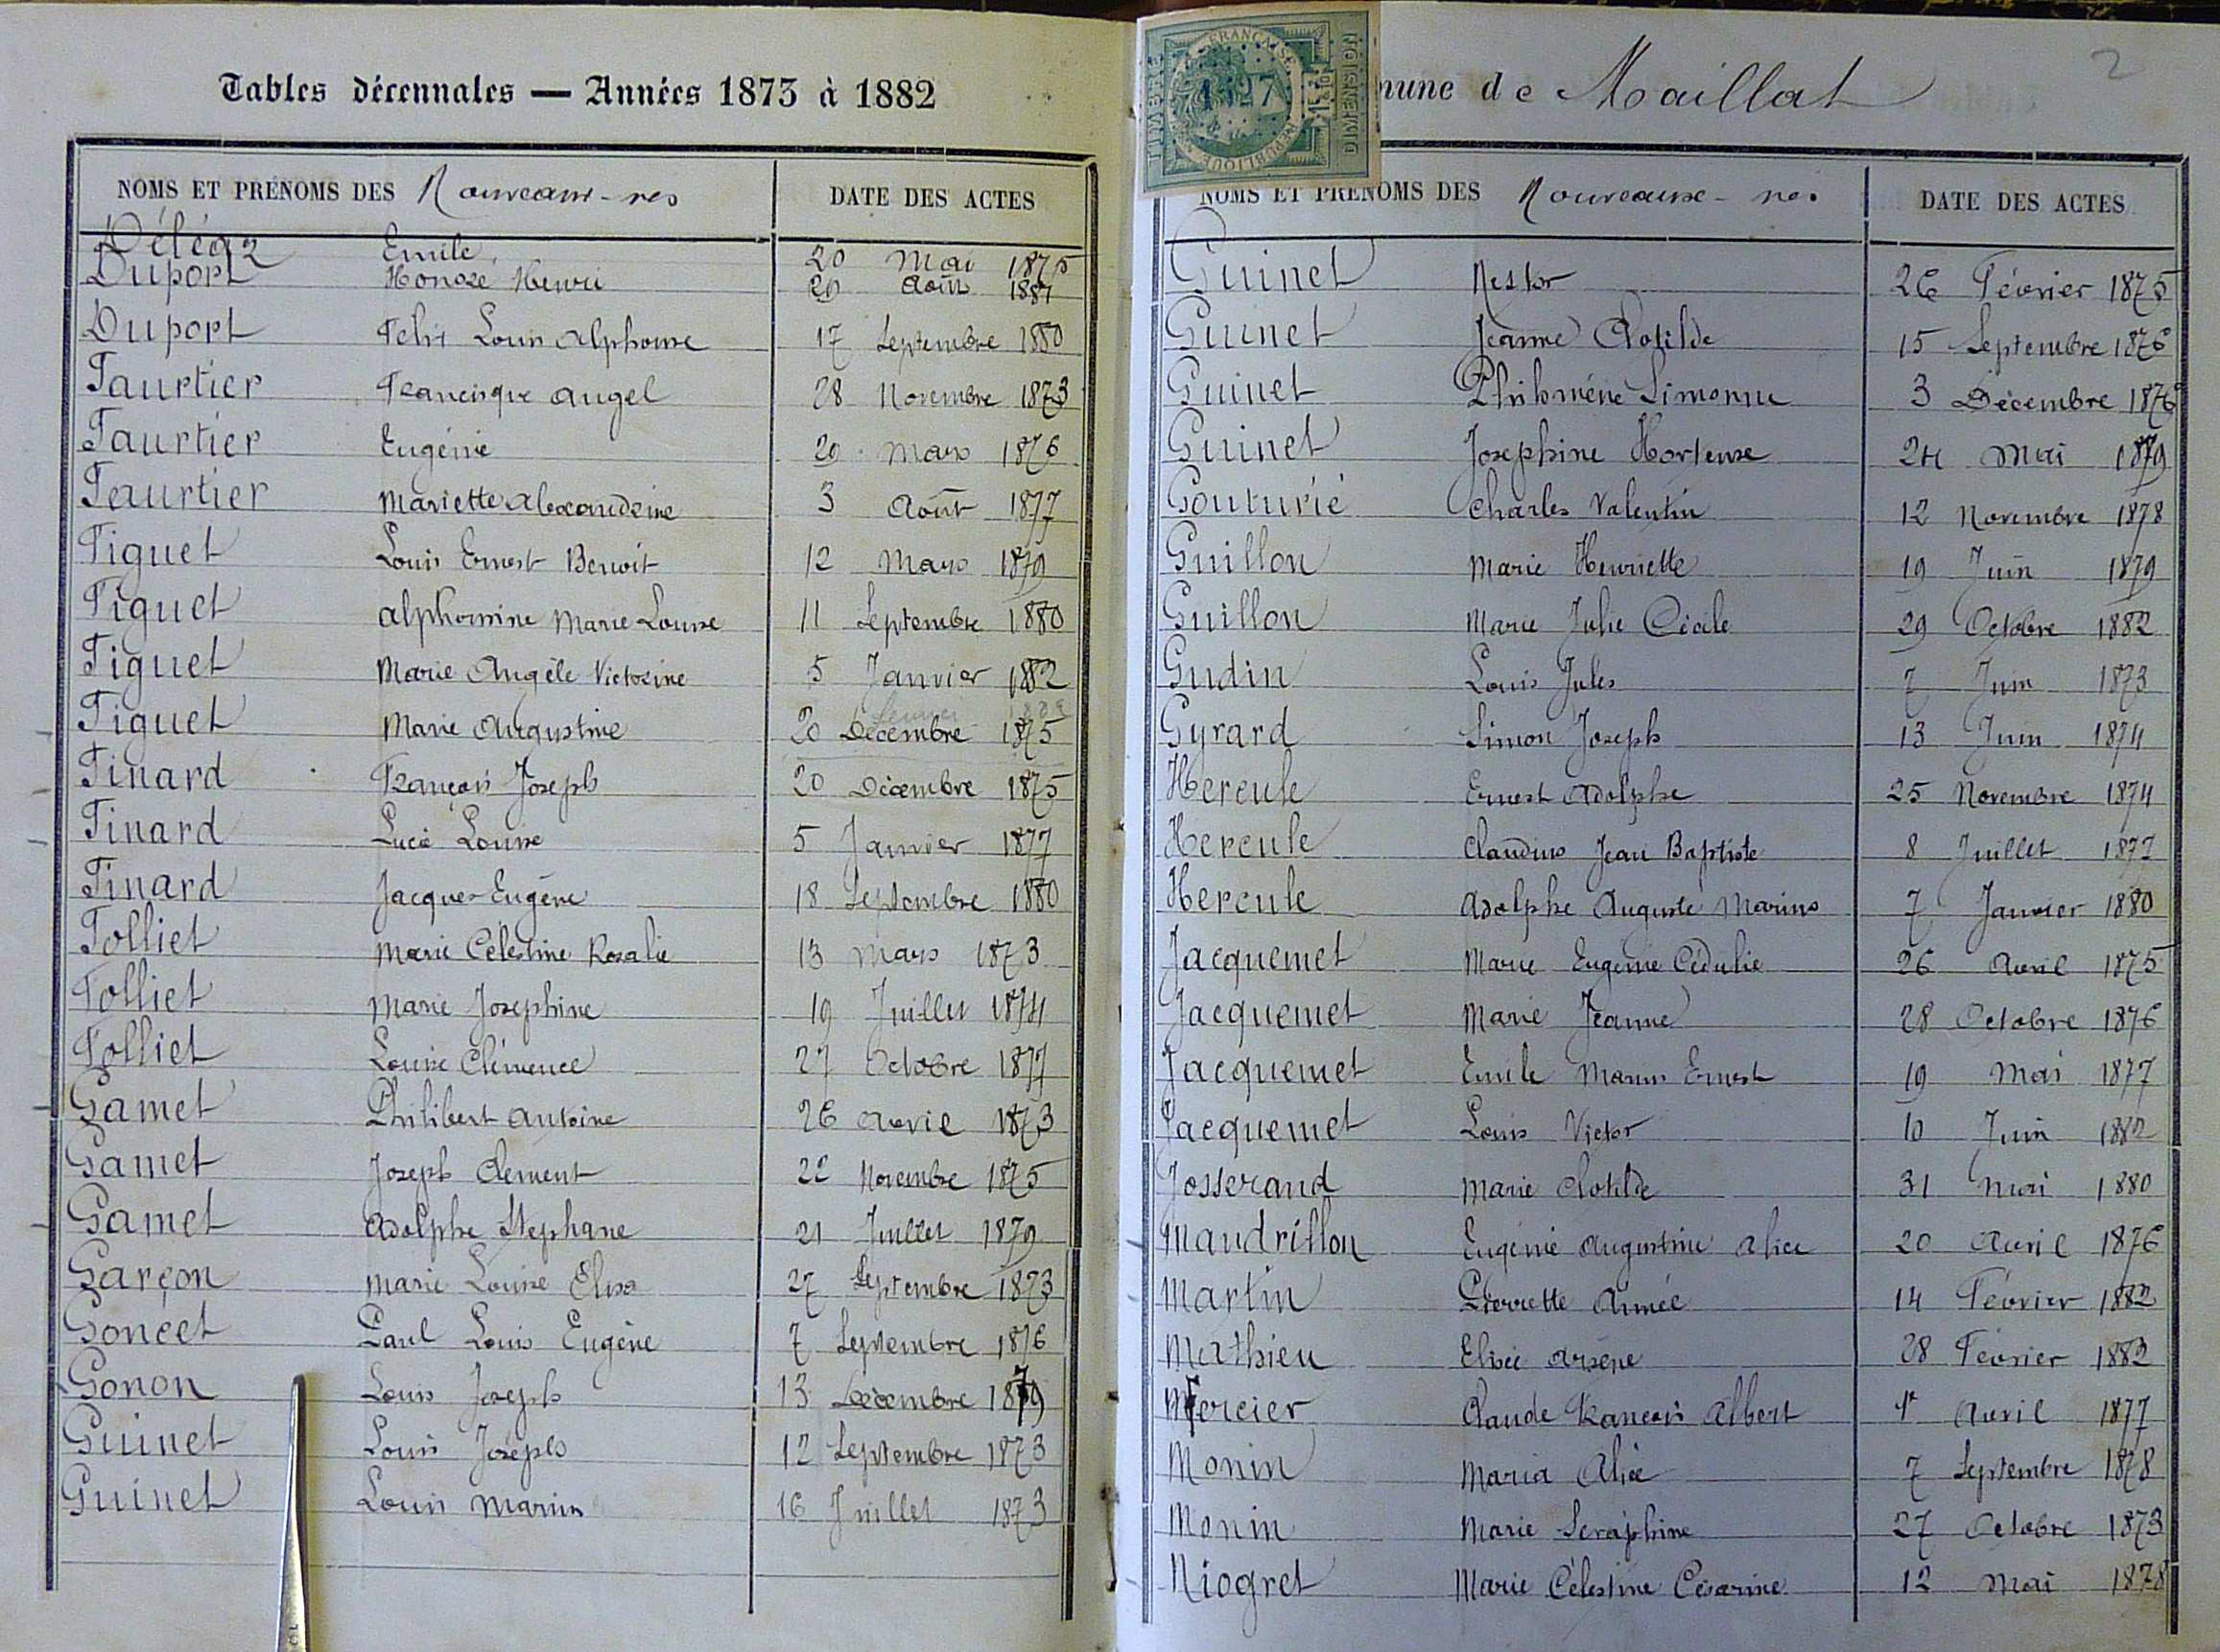 Tables décennales — Années 1873 à 1882
NOMS ET PRÉNOMS DES Nouveaux-nés DATE DES ACTES
Déléaz Emile 20 Mai 1875
Duport Honoré Henri 20 Août 1881
Duport Felix Louis Alphonse 17 Septembre 1880
Faurtier Francisque Angel 28 Novembre 1873
Faurtier Eugénie 20 Mars 1876
Faurtier Mariette Alexandrine 3 Août 1877
Figuet Louis Ernest Benoit 12 Mars 1879
Figuet Alphonsine Marie Louise 11 Septembre 1880
Figuet Marie Angèle Victorine 5 Janvier 1882
Figuet Marie Augustine 20 Décembre 1875
Finard François Joseph 20 Décembre 1875
Finard Lucie Louise 5 Janvier 1877
Finard Jacques Eugène 18 Septembre 1880
Folliet Marie Célestine Rosalie 13 Mars 1873
Folliet Marie Joséphine 19 Juillet 1874
Folliet Louise Clémence 27 Octobre 1877
Gamet Philibert Antoine 26 Avril 1873
Gamet Joseph Clement 22 Novembre 1875
Gamet Adolphe Stephane 21 Juillet 1879
Garçon Marie Louise Elisa 27 Septembre 1873
Goncet Paul Louis Eugène 7 Septembre 1876
Gonon Louis Joseph 13 Décembre 1879
Guinet Louis Joseph 12 Septembre 1873
Guinet Louis Marius 16 Juillet 1873
RÉPUBLIQUE FRANÇAISE
1527
DIMENSION
TIMBRE
mune de Maillat
2
NOMS ET PRÉNOMS DES Nouveaux-nés DATE DES ACTES
Guinet Nestor 26 Février 1875
Guinet Jeanne Clotilde 15 Septembre 1876
Guinet Philomène Simonne 3 Décembre 1876
Guinet Josephine Hortense 24 Mai 1879
Gouturié Charles Valentin 12 Novembre 1878
Guillon Marie Henriette 19 Juin 1879
Guillon Marie Julie Cécile 29 Octobre 1882
Gudin Louis Jules 7 Juin 1873
Gyrard Simon Joseph 13 Juin 1874
Hercule Ernest Adolphe 25 Novembre 1874
Hercule Claudius Jean Baptiste 8 Juillet 1877
Hercule Adolphe Auguste Marius 7 Janvier 1880
Jacquemet Marie Eugénie Cédulie 26 Avril 1875
Jacquemet Marie Jeanne 28 Octobre 1876
Jacquemet Emile Marius Ernest 19 Mai 1877
Jacquemet Louis Victor 10 Juin 1882
Josserand Marie Clotilde 31 Mai 1880
Mandrillon Eugénie Augustine Alice 20 Avril 1876
Martin Pierrette Aimée 14 Février 1882
Mathieu Elisée Arsène 28 Février 1882
Mercier Claude François Albert 1r Avril 1877
Monin Maria Alice 7 Septembre 1878
Monin Marie Séraphine 27 Octobre 1873
Niogret Marie Célestine Césarine 12 Mai 1878